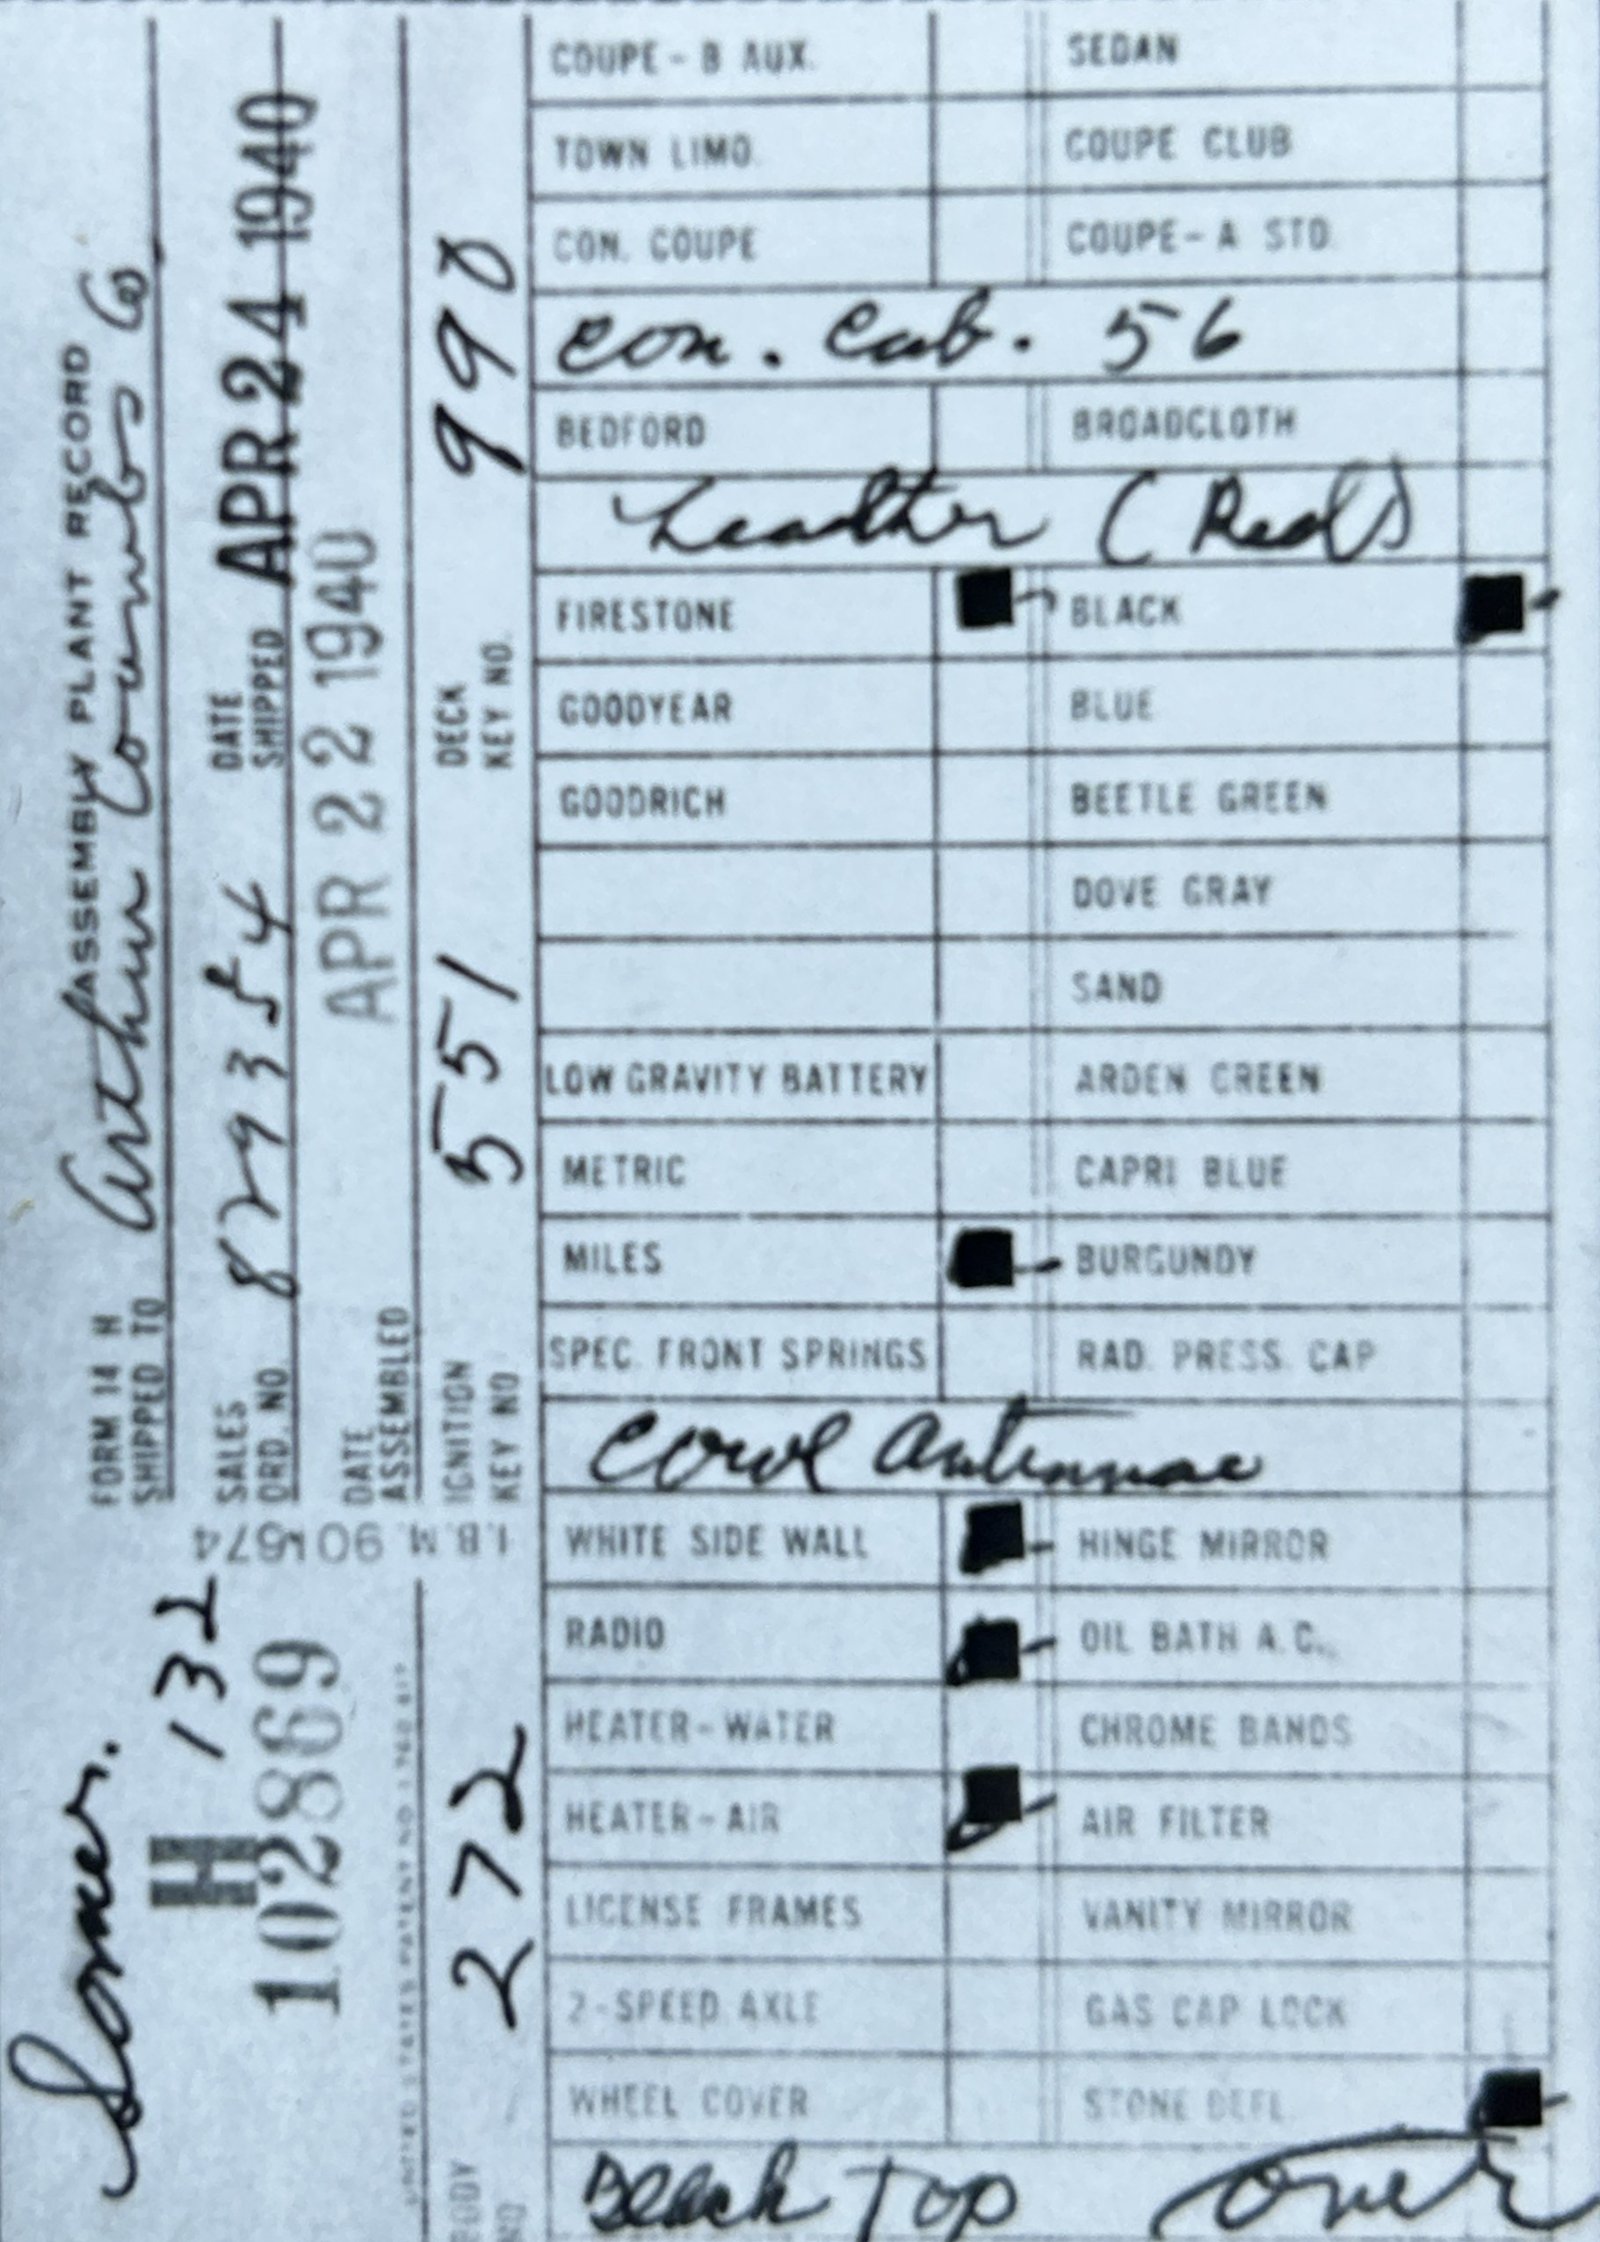 FORM 14 H ASSEMBLY PLANT RECORD
SHIPPED TO Arthur Coumbs Co
SALES ORD. NO. 829354
DATE SHIPPED APR 24 1940
DATE ASSEMBLED APR 22 1940
IGNITION KEY NO 551
DECK KEY NO. 990
I.B.M. 901674
H 132
102869
UNITED STATES PATENT NO. 1,780,617
BODY NO 272
COUPE - B AUX. SEDAN
TOWN LIMO. COUPE CLUB
CON. COUPE COUPE - A STD.
Con. Cab. 56
BEDFORD BROADCLOTH
Leather (Red)
FIRESTONE BLACK
GOODYEAR BLUE
GOODRICH BEETLE GREEN
DOVE GRAY
SAND
LOW GRAVITY BATTERY ARDEN GREEN
METRIC CAPRI BLUE
MILES BURGUNDY
SPEC. FRONT SPRINGS RAD. PRESS. CAP
Cowl Antennae
WHITE SIDE WALL HINGE MIRROR
RADIO OIL BATH A.C.
HEATER - WATER CHROME BANDS
HEATER - AIR AIR FILTER
LICENSE FRAMES VANITY MIRROR
2-SPEED AXLE GAS CAP LOCK
WHEEL COVER STONE DEFL.
Black Top over